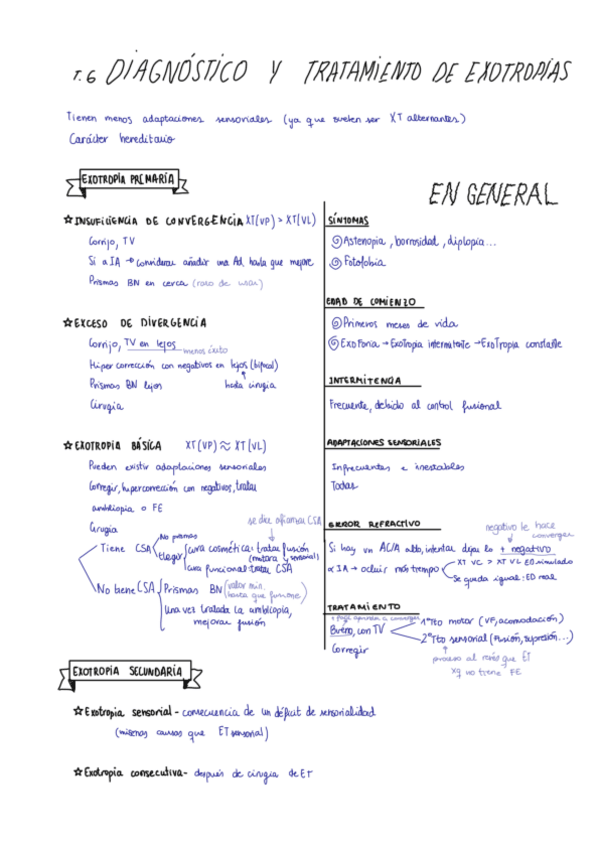 T.6 DIAGNÓSTICO Y TRATAMIENTO DE EXOTROPÍAS
Tienen menos adaptaciones sensoriales (ya que suelen ser XT alternantes)
Carácter hereditario
EXOTROPÍA PRIMARIA
☆ INSUFICIENCIA DE CONVERGENCIA XT(VP) > XT(VL)
Corrijo, TV
Si ∝IA → considerar añadir una Ad, hasta que mejore
Prismas BN en cerca (raro de usar)
☆ EXCESO DE DIVERGENCIA
Corrijo, TV en lejos
menos éxito
Hipercorrección con negativos en lejos (bifocal)
Prismas BN lejos
hasta cirugía
Cirugía
☆ EXOTROPÍA BÁSICA XT(VP) ≈ XT(VL)
Pueden existir adaptaciones sensoriales
Corregir, hipercorrección con negativos, tratar
ambliopía o FE
Cirugía
se dice
CSA
Tiene CSA
No prismas
Elegir
cura cosmética: tratar fusión
(motora y sensorial)
cura funcional: tratar CSA
No tiene CSA
Prismas BN (valor min.
hasta que fusione)
Una vez tratada la ambliopía,
mejorar fusión
EXOTROPIA SECUNDARIA
☆ Exotropia sensorial - consecuencia de un déficit de sensorialidad
(mismas causas que ET sensorial)
☆ Exotropia consecutiva - después de cirugía de ET
EN GENERAL
SÍNTOMAS
Astenopia, borrosidad, diplopia...
Fotofobia
EDAD DE COMIENZO
Primeros meses de vida
Exoforia → Exotropia intermitente → Exotropia constante
INTERMITENCIA
Frecuente, debido al control fusional
ADAPTACIONES SENSORIALES
Infrecuentes e inestables
Todas
ERROR REFRACTIVO
negativo le hace
converger
Si hay un AC/A alto, intentar dejarlo + negativo
∝ IA → ocluir más tiempo
XT VC > XT VL EO simulado
Se queda igual: EO real
TRATAMIENTO
+ fácil aprender a converger
Bueno, con TV
1º Tto motor (VF, acomodación)
2º Tto sensorial (fusión, supresión...)
Corregir
proceso al revés que ET
xq no tiene FE